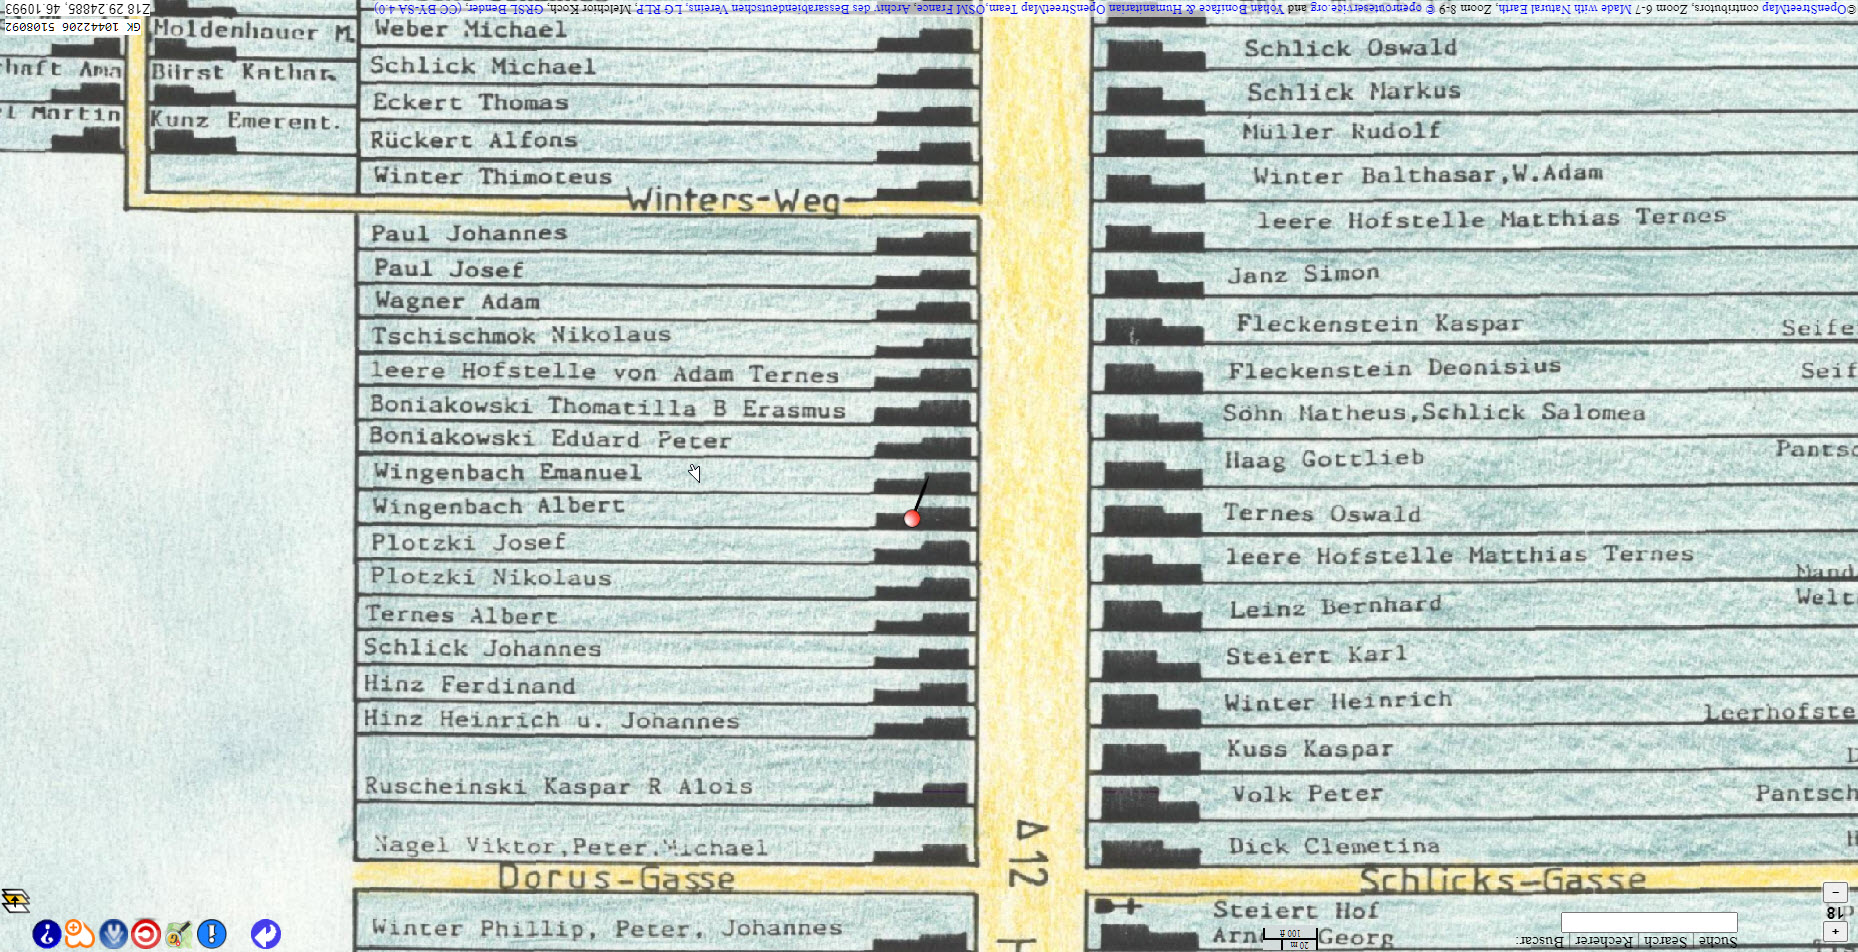 Z18 29.24885, 46.10993
©OpenStreetMap contributors, Zoom 6-7 Made with Natural Earth, Zoom 8-9 © openrouteservice.org and Yohan Boniface & Humanitarian OpenStreetMap Team, OSM France, Archiv des Bessarabiendeutschen Vereins, LG RLP, Melchior Koch, GRSL Bender, (CC-BY-SA 4.0)
GK 10442206 5108092
Moldenhauer M.
Bilrst Kathar.
Martin
Kunz Emerent.
Weber Michael
Schlick Michael
Eckert Thomas
Rückert Alfons
Winter Thimoteus
Winters-Weg
Paul Johannes
Paul Josef
Wagner Adam
Tschischmok Nikolaus
leere Hofstelle von Adam Ternes
Boniakowski Thomatilla B Erasmus
Boniakowski Eduard Peter
Wingenbach Emanuel
Wingenbach Albert
Plotzki Josef
Plotzki Nikolaus
Ternes Albert
Schlick Johannes
Hinz Ferdinand
Hinz Heinrich u. Johannes
Ruscheinski Kaspar R Alois
Nagel Viktor,Peter,Michael
Dorus-Gasse
Winter Phillip, Peter, Johannes
A 12
Schlick Oswald
Schlick Markus
Müller Rudolf
Winter Balthasar,W.Adam
leere Hofstelle Matthias Ternes
Janz Simon
Fleckenstein Kaspar
Seife
Fleckenstein Deonisius
Seif
Söhn Matheus,Schlick Salomea
Haag Gottlieb
Pantsc
Ternes Oswald
leere Hofstelle Matthias Ternes
Mand
Leinz Bernhard
Welt
Steiert Karl
Winter Heinrich
Leerhofste
Kuss Kaspar
Volk Peter
Pantsch
Dick Clemetina
Schlicks-Gasse
Steiert Hof
Georg
100 ft
20 m
Suche | Search | Rechercher | Buscar:
−
18
+